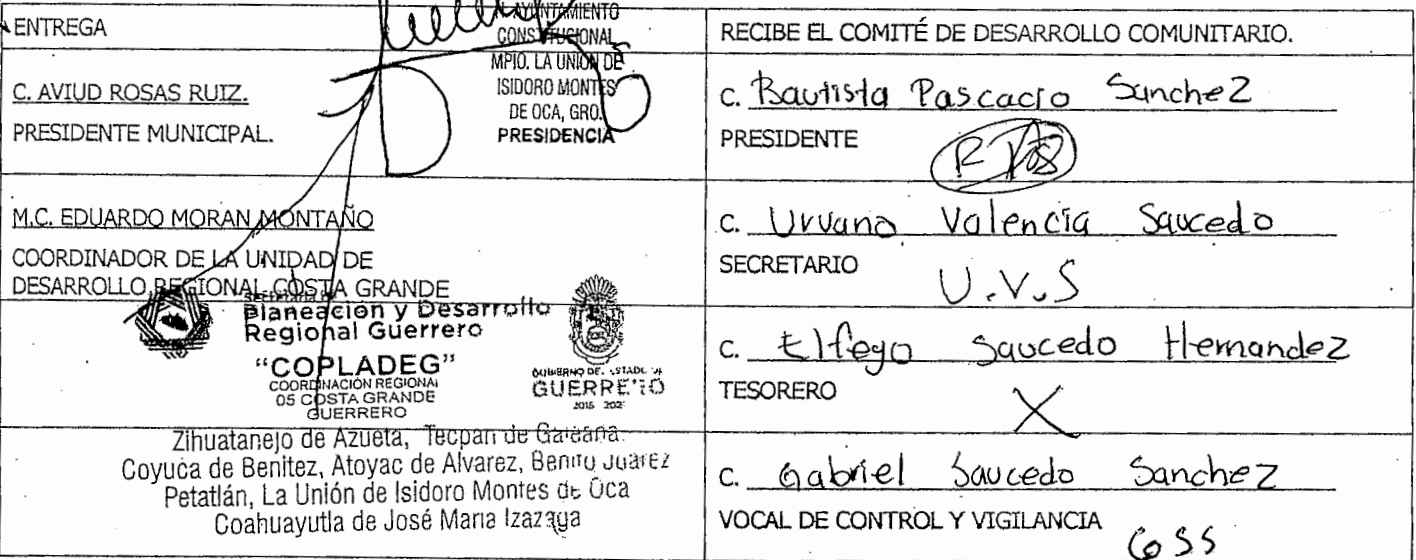 ENTREGA
C. AVIUD ROSAS RUIZ.
PRESIDENTE MUNICIPAL.
H. AYUNTAMIENTO
CONSTITUCIONAL
MPIO. LA UNION DE
ISIDORO MONTES
DE OCA, GRO.
PRESIDENCIA
M.C. EDUARDO MORAN MONTAÑO
COORDINADOR DE LA UNIDAD DE
DESARROLLO REGIONAL COSTA GRANDE
Secretaría de
Planeación y Desarrollo
Regional Guerrero
“COPLADEG”
COORDINACIÓN REGIONAL
05 COSTA GRANDE
GUERRERO
GOBIERNO DEL ESTADO DE
GUERRERO
2015 2021
Zihuatanejo de Azueta, Tecpan de Galeana.
Coyuca de Benitez, Atoyac de Alvarez, Benito Juarez
Petatlán, La Unión de Isidoro Montes de Oca
Coahuayutla de José Maria Izazaga
RECIBE EL COMITÉ DE DESARROLLO COMUNITARIO.
C. Bautista Pascacio Sanchez
PRESIDENTE
C. Urvano Valencia Saucedo
SECRETARIO
U.V.S
C. Elfego Saucedo Hernandez
TESORERO
X
C. Gabriel Saucedo Sanchez
VOCAL DE CONTROL Y VIGILANCIA
GSS